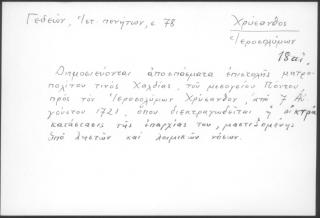 Γεδεών, Ἱστ πενήτων, σ 78
Χρύσανθος
Ἱεροσολύμων
18 αἰ.
Δημοσιεύονται ἀποσπάσματα ἐπιστολῆς μητρο
πολίτου τινός Χαλδίας, τοῦ μεσογείου Πόντου,
πρός τόν Ἱεροσολύμων Χρύσανθον, ἀπό 7 Αὐ
γούστου 1721, ὅπου διεκτραγωδεῖται ἡ οἰκτρά
κατάστασις τῆς ἐπαρχίας του, μαστιζομένης
ὑπό λῃστῶν καί λοιμικῶν νόσων.